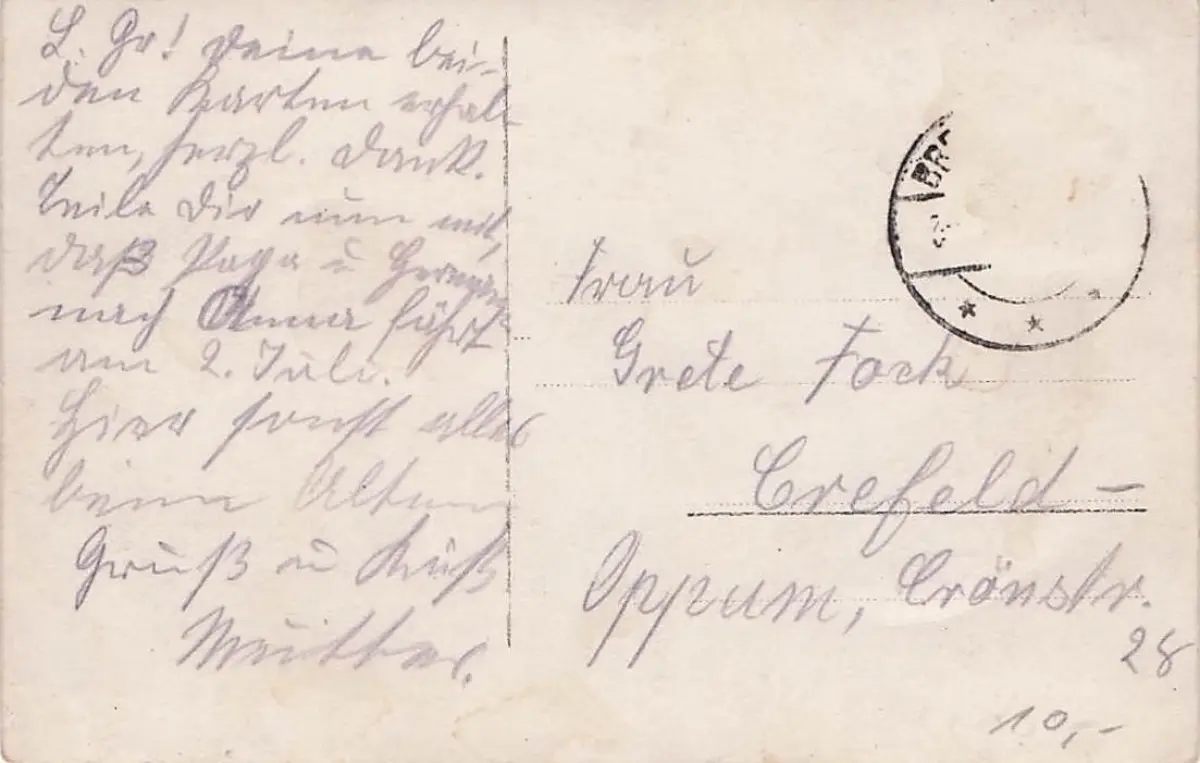 L. Gr! Deine bei-
den Karten erhal-
ten, herzl. Dank.
Teile Dir nun mit,
daß Papa u Hermann
nach Anna fährt
am 2. Juli.
Hier sonst alles
beim Alten
Gruß u Kuß
Mutter.
BRE
Frau
Grete Fock
Crefeld-
Oppum, Crönstr.
28
10,-